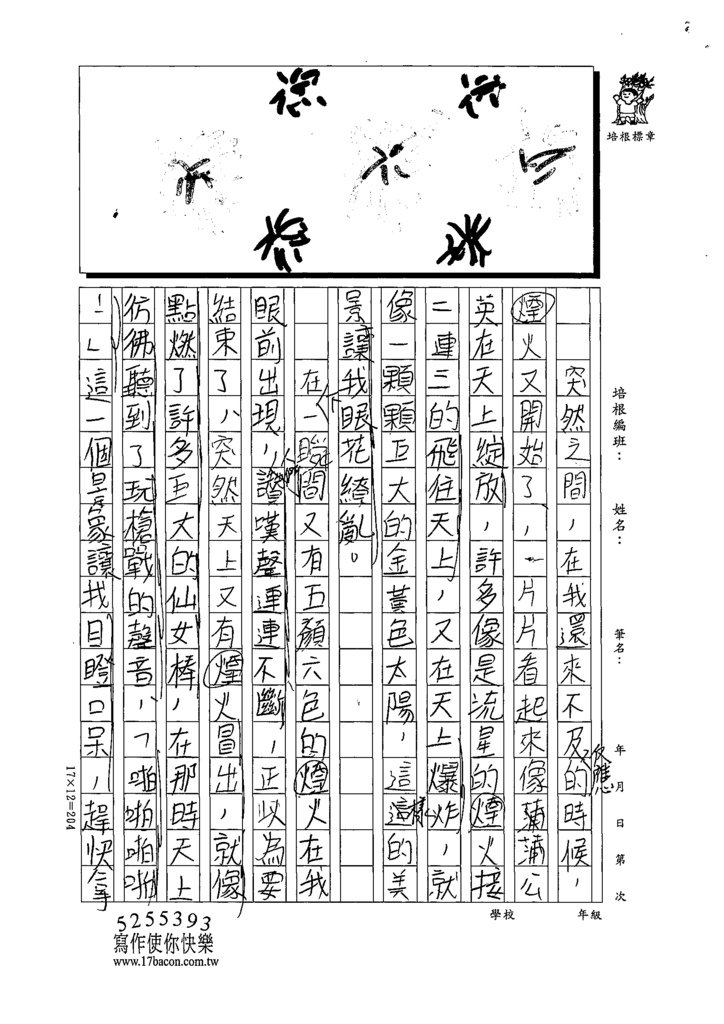 培根標章
培根編班：
姓名：
筆名：
年 月 日 第 次
學校 年級
突然之間，在我還來不及反應的時候，
煙火又開始了，一片片看起來像蒲蒲公
英在天上綻放，許多像是流星的煙火接
二連三的飛往天上，又在天上爆炸，就
像一顆顆巨大的金黃色太陽，這這樣的美
景讓我眼花繚亂。
在一瞬間又有五顏六色的煙火在我
眼前出現，人們讚嘆聲連連不斷，正以為要
結束了，突然天上又有煙火冒出，就像
點燃了許多巨大的仙女棒，在那時天上
彷彿聽到了玩槍戰的聲音，「啪啪啪啪
！」這一個景象讓我目瞪口呆，趕快拿
17×12=204
5255393
寫作使你快樂
www.17bacon.com.tw